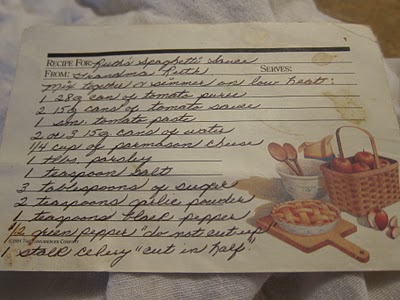 RECIPE FOR: Ruth's Spaghetti Sauce
FROM: Grandma Ruth SERVES:
Mix together & simmer on low heat:
1 28g can of tomato puree
2 15g cans of tomato sauce
1 sm. tomato past
2 or 3 15g cans of water
1/4 cup of parmason cheese
1 tbls. parsley
1 teaspoon salt
3 tablespoons of sugar
2 teaspoons garlic powder
1 teaspoons black pepper
1/2 green pepper "do not cut up"
1 stalk celery "cut in half"